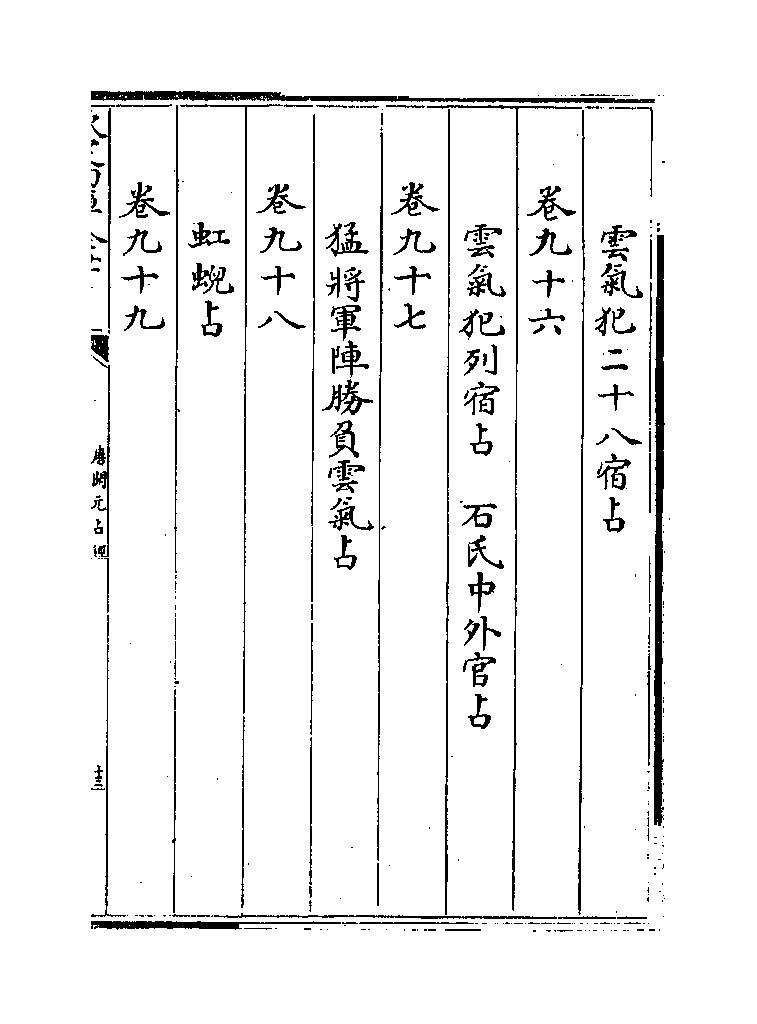 雲氣犯二十八宿占
卷九十六
雲氣犯列宿占　石氏中外官占
卷九十七
猛將軍陣勝負雲氣占
卷九十八
虹蜺占
卷九十九
唐開元占經
十三